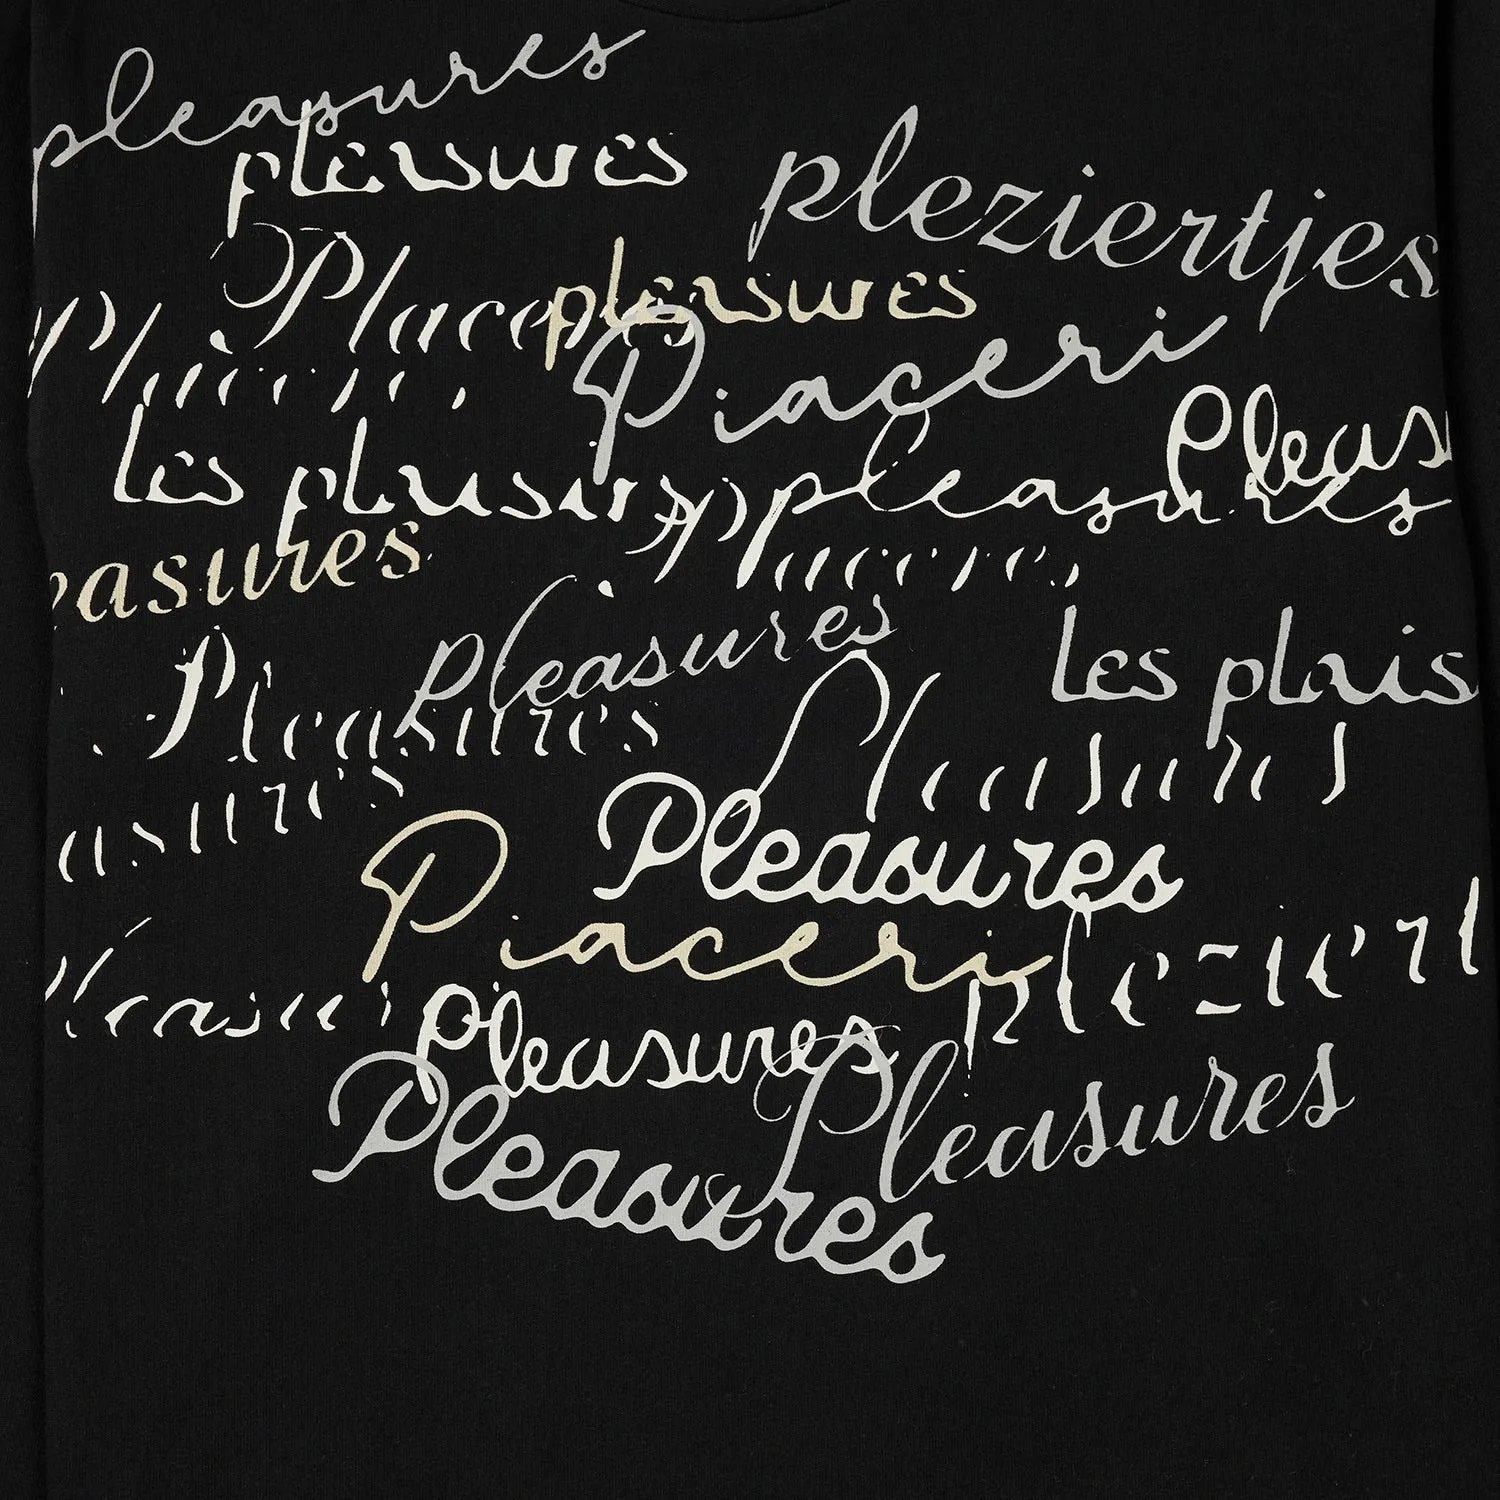 pleasures
pleasures
pleziertjes
Placeres
pleasures
Placeres
Piaceri
Pleas
les plaisirs
pleasures
Placeres
easures
pleasures
les plais
Pleasures
Pleasures
asures
Pleasures
Piaceri
pleziert
Pleasures
Pleasures
Pleasures